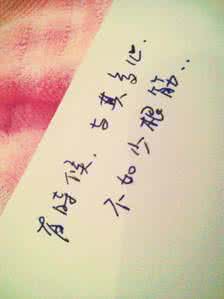 有时候.与其多心.
不如少根筋..